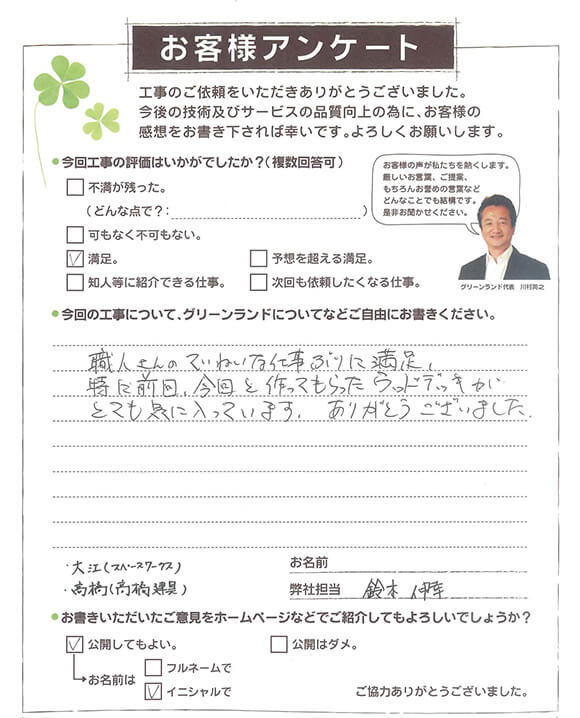 お客様アンケート
工事のご依頼をいただきありがとうございました。
今後の技術及びサービスの品質向上の為に、お客様の
感想をお書き下されば幸いです。よろしくお願いします。
今回工事の評価はいかがでしたか？（複数回答可）
不満が残った。
（どんな点で？：）
可もなく不可もない。
満足。
予想を超える満足。
知人等に紹介できる仕事。
次回も依頼したくなる仕事。
お客様の声が私たちを熱くします。
厳しいお言葉、ご提案、
もちろんお誉めの言葉など
どんなことでも結構です。
是非お聞かせください。
グリーンランド代表 川村真之
今回の工事について、グリーンランドについてなどご自由にお書きください。
職人さんのていねいな仕事ぶりに満足、
特に前回、今回と作ってもらったウッドデッキが
とても気に入っています。ありがとうございました。
・大江（スペースワークス）
・高橋（高橋建具）
お名前
弊社担当 鈴木
お書きいただいたご意見をホームページなどでご紹介してもよろしいでしょうか？
公開してもよい。
公開はダメ。
お名前は
フルネームで
イニシャルで
ご協力ありがとうございました。